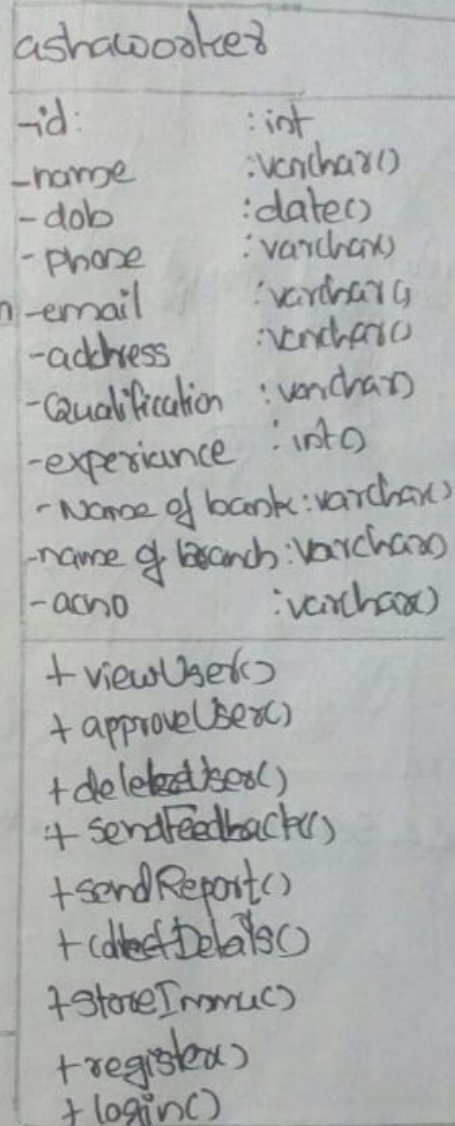 ashaworker
-id: : int
-name : varchar()
-dob : date()
-phone : varchar()
n -email : varchar()
-address : varchar()
-Qualification : varchar()
-experiance : int()
-Name of bank : varchar()
-name of branch : varchar()
-acno : varchar()
+ viewUser()
+ approveUser()
+ deletedUser()
+ sendFeedback()
+ sendReport()
+ collectDetails()
+ storeImmu()
+ register()
+ login()